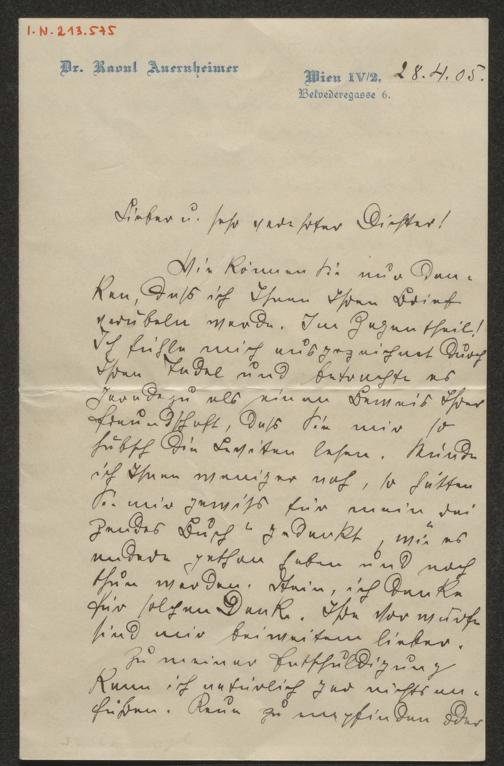 I.N. 213.575
Dr. Raoul Auernheimer
Wien IV/2, 28.4.05.
Belvederegasse 6.
Lieber u. sehr verehrter Dichter!
Wie können Sie nur den-
ken, daß ich Ihnen Ihren Brief
verübeln werde. Im Gegentheil!
Ich fühle mich ausgezeichnet durch
Ihren Tadel und betrachte es
geradezu als einen Beweis Ihrer
Freundschaft, daß Sie mir so
hübsch die Leviten lesen. Stünde
ich Ihnen weniger nah, so hätten
Sie mir gewiß für mein „rei
zendes Buch“ gedankt, wie es
andere gethan haben und noch
thun werden. Nein, ich danke
für solchen Dank. Ihre Vorwürfe
sind mir beiweitem lieber.
Zu meiner Entschuldigung
kann ich natürlich gar nichts an-
führen. Reue zu empfinden oder